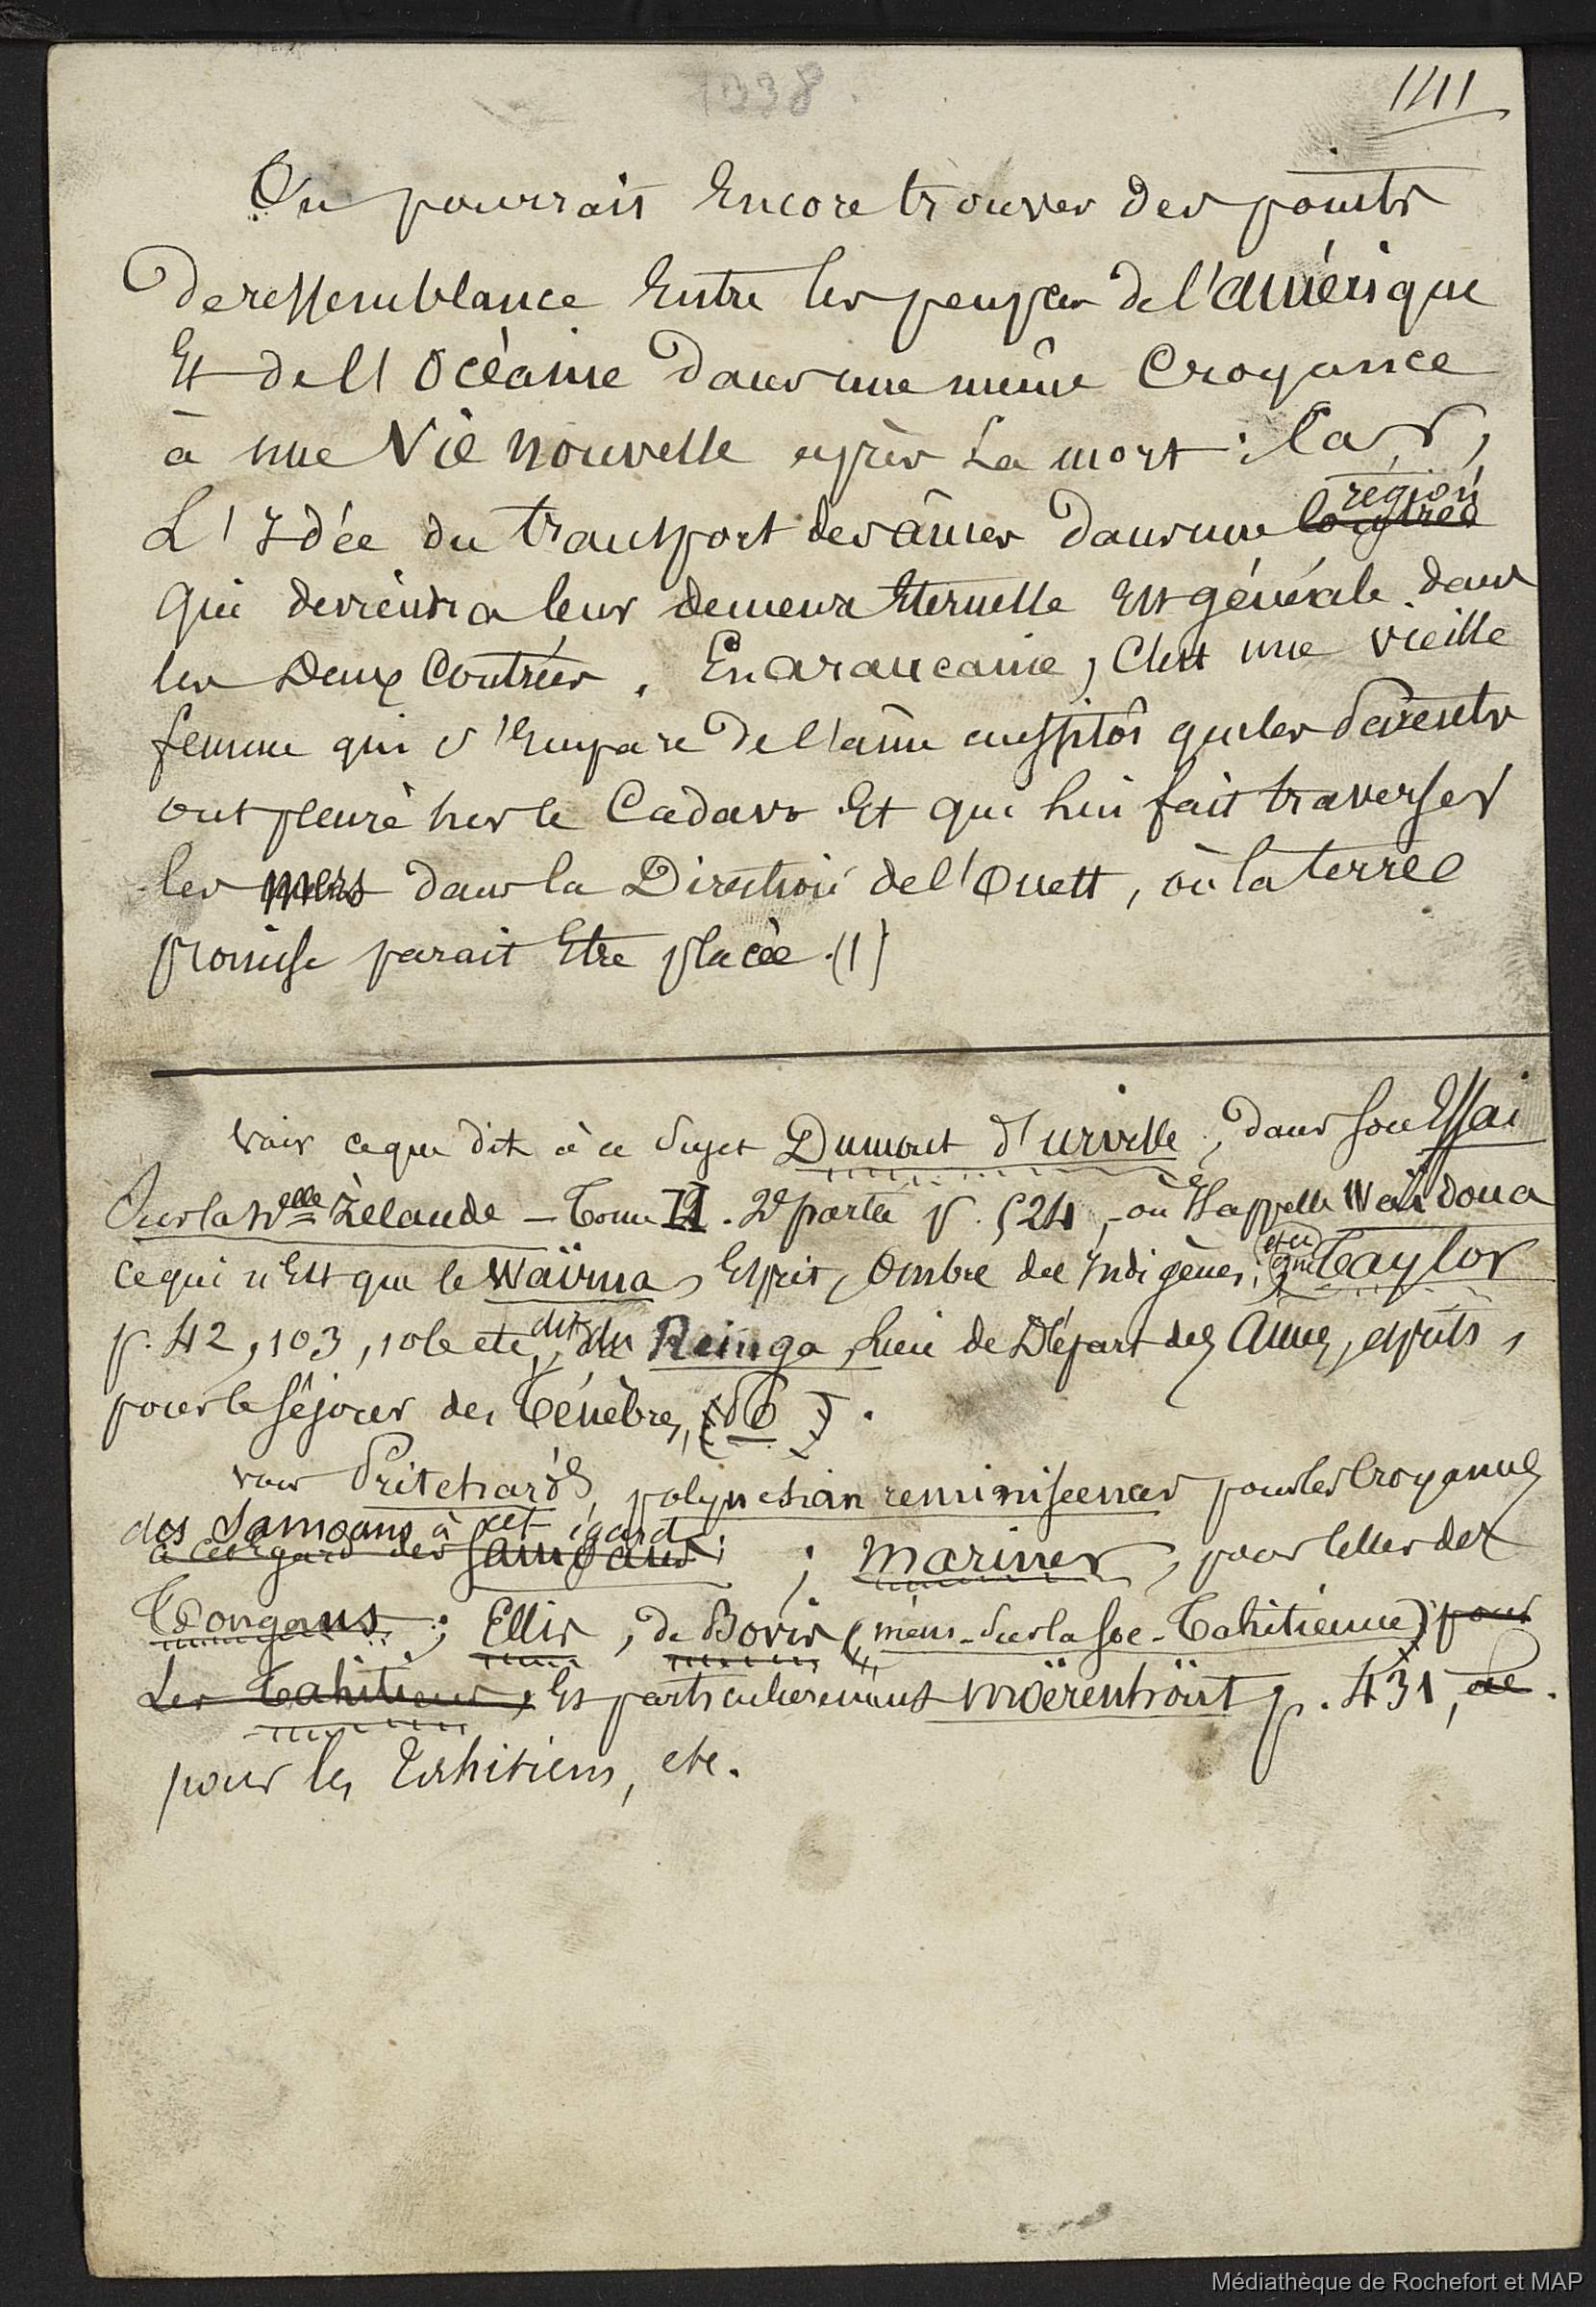 1338.
1411
On pourrait Encore trouver des points
de ressemblance Entre les peuples de l'amérique
Et de l'Océanie dans une même Croyance
à une Vie nouvelle après La mort : Car,
région
L'Idée du transport des âmes dans une contrée
qui deviendra leur demeure Eternelle Est générale dans
les Deux Contrées. En araucanie, C'est une vieille
femme qui s'Empare de l'âme aussitôt que les Parents
ont pleuré sur le Cadavre Et qui lui fait traverser
les mers dans la Direction de l'Ouest, où la terre
promise parait Etre placée. (1)
voir ce que dit à ce Sujet Dumont d'urville, dans son Essai
Sur la Nelle Zélande - Tome II. 2e partie p. 524, où Il appelle Waïdoua
ce qui n'Est que le Waïrua, Esprit, Ombre des Indigènes; (et ce que Taylor
p. 42, 103, 104 etc, dit du Reinga, Lieu de Départ des âmes, esprits,
pour le séjour des Ténèbres, (Po).
voir Pritchard, polynesian reminiscences pour les Croyances
des Samoans à cet égard
à cet Egard des Samoans; ; mariner, pour celles des
Tongans; Ellis, de Bovis (mém. Sur la Soc. Tahitienne) pour
Les Tahitiens, Et particulièrement moërenhoüt p. 431, de.
pour les Tahitiens, etc.
Médiathèque de Rochefort et MAP